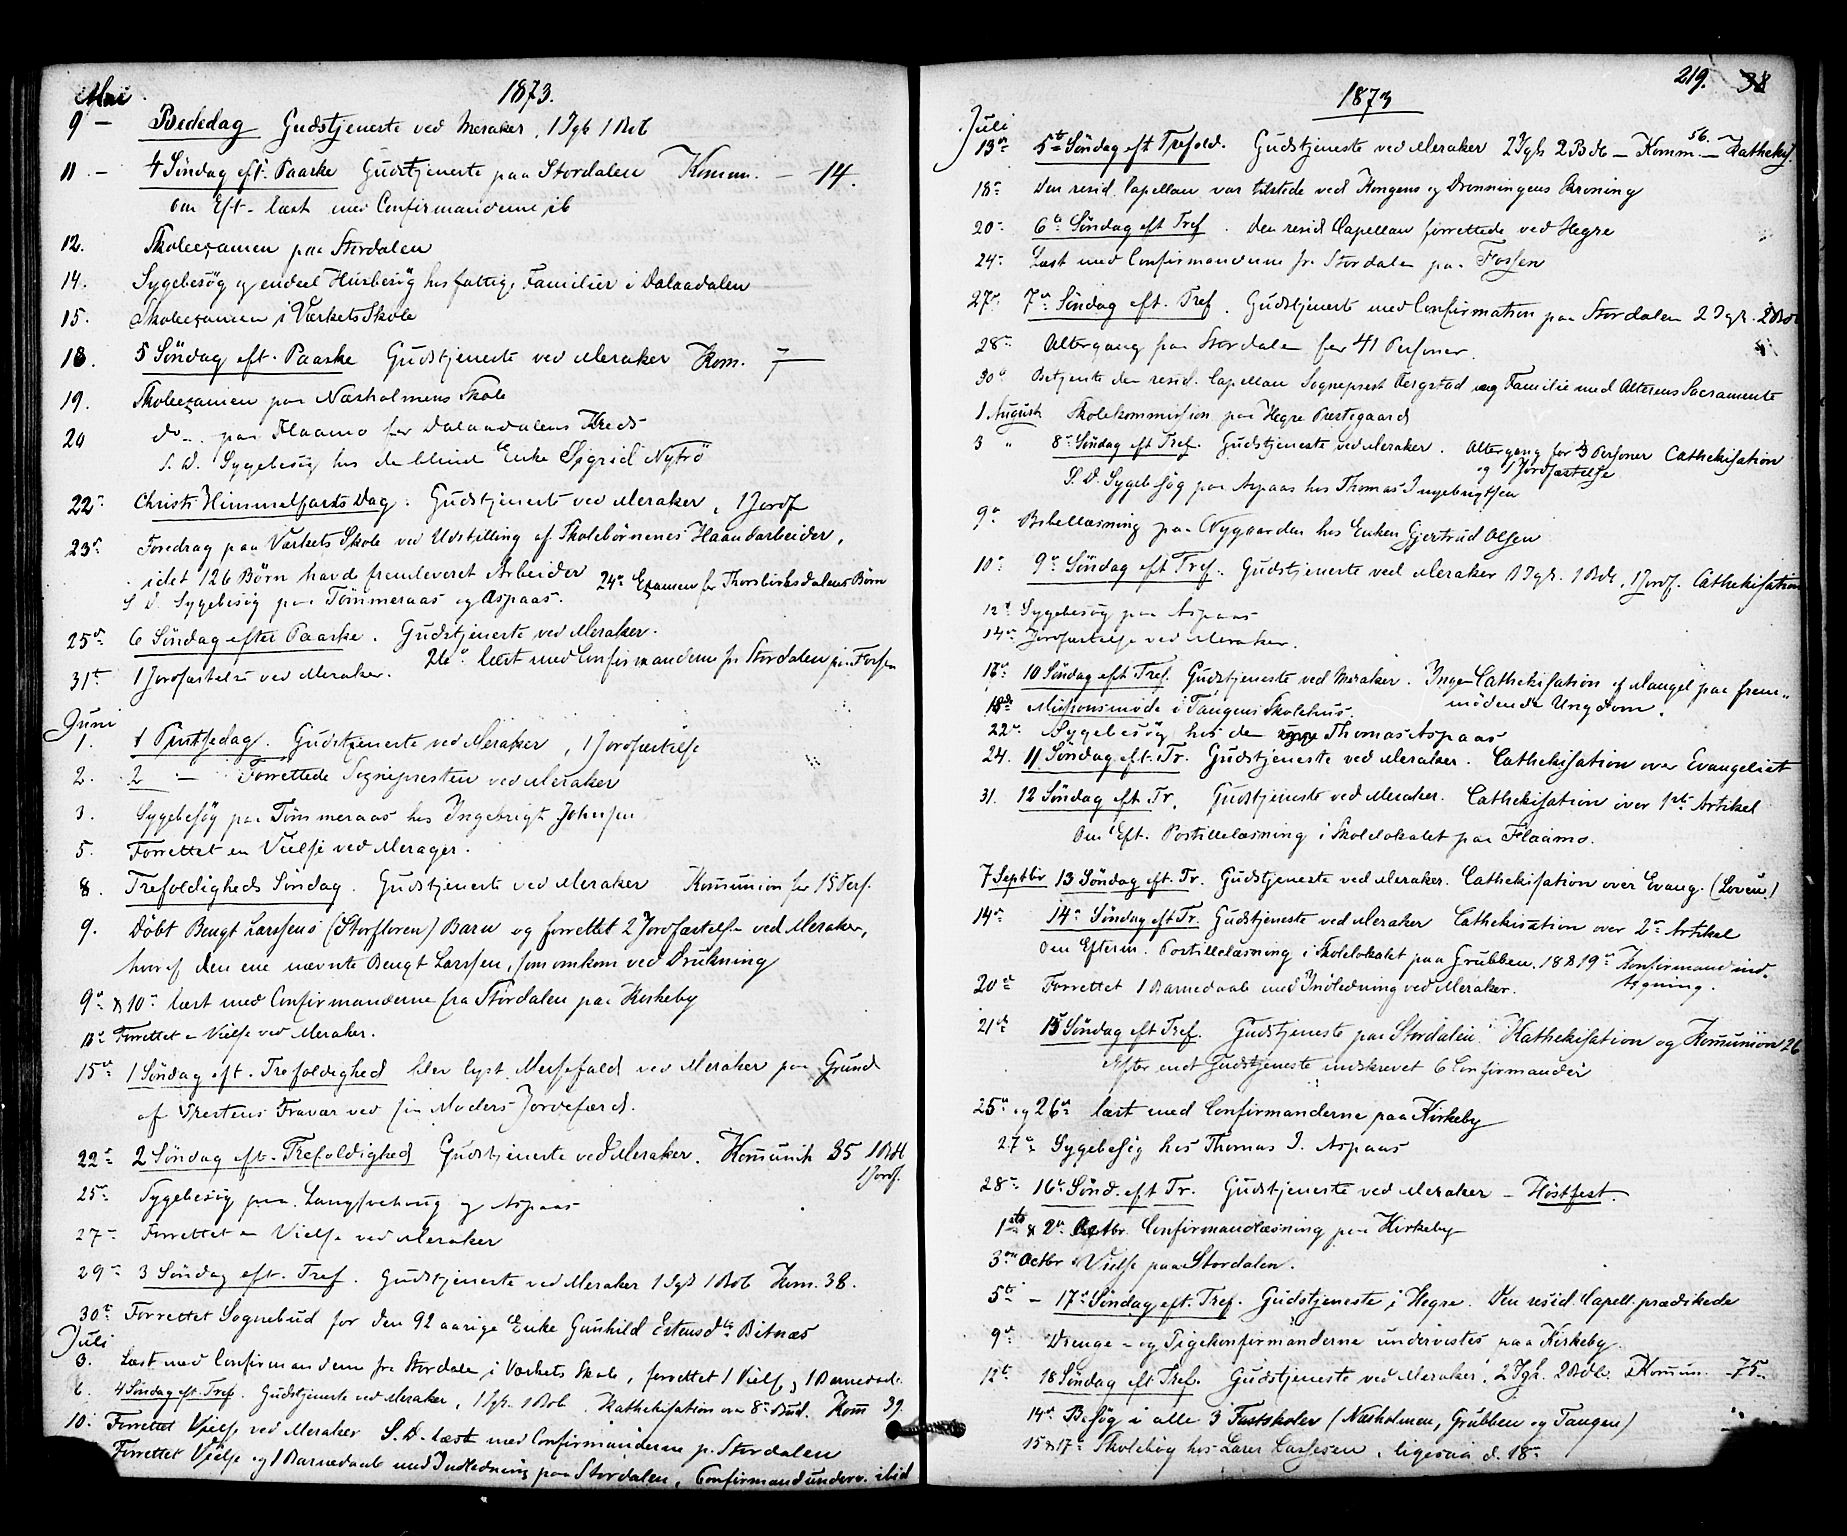 Mai 1873.
9 — Bededag Gudstjeneste ved Meraker, 1 Igb 1 Bdb
11. — 4 Söndag eft. Paaske Gudstjeneste paa Stordalen Komm. — 14.
om Eft. læst med Confirmanderne ib
12. Skoleexamen paa Stordalen
14. Sygebesög og endeel Huusbesög hos fattige Familier i Dalaadalen
15. Skoleexamen i Værkets Skole
18. 5 Söndag eft. Paaske Gudstjeneste ved Meraker Kom. 7
19. Skoleexamen paa Næsholmens Skole
20 do paa Flaamo for Dalaadalens Kreds
S. D. Sygebesög hos den blinde Enke Sigrid Nytrö
22 Christi Himmelfarts Dag. Gudstjeneste ved Meraker, 1 Jordf
23 Foredrag paa Værkets Skole ved Udstilling af Skolebörnenes Haandarbeider,
idet 126 Börn havde fremleveret Arbeider 24 Examen for Thorsbirksdalens Börn
S. d. Sygebesög paa Tömmeraas og Aspaas.
25 6 Söndag efter Paaske. Gudstjeneste ved Meraker.
26 læst med Confirmanderne fr Stordalen paa Fossen
31 1 Jordfæstelse ved Meraker.
Juni
1. 1 Pintsedag. Gudstjeneste ved Meraker, 1 Jordfæstelse
2. 2 — Forrettede Sognepresten ved Meraker
3. Sygebesög paa Tömmeraas hos Ingebrigt Johnsen
5. Forrettet en Vielse ved Merager.
8. Trefoldigheds Söndag. Gudstjeneste ved Meraker Kommunion for 18 Pers.
9. Döbt Bengt Larssens (Storfloren) Barn og forrettet 2 Jordfæstelse ved Meraker,
hvoraf den ene nævnte Bengt Larssen, som omkom ved Drukning
9 & 10 læst med Confirmanderne fra Stordalen paa Kirkeby
Forrettet en Vielse ved Meraker.
15 1 Söndag eft. Trefoldighed blev lyst Messefald ved Meraker paa Grund
af Prestens Fravær ved sin Moders Jordefærd.
22 2 Söndag eft. Trefoldighed Gudstjeneste ved Meraker. Komunik 35 1 Bdb
1 Jordf.
25 Sygebesög paa Langsvehaug og Aspaas
27 Forrettet en Vielse ved Meraker
29 3 Söndag eft. Tref. Gudstjeneste ved Meraker 1 Igb 1 Bdb Kom. 38.
30 Forrettet Sognebud for den 92 aarige Enke Gunhild Estensdtr Bitnæs
Juli
3. Læst med Confirmanderne fra Stordalen i Værkets Skole, forrettet 1 Vielse og 1 Barnedaab
6. 4 Söndag eft. Tref. Gudstjeneste ved Meraker, 1 Igb. 1 Bdb. Kathekisation over 8 Bud. Kom 39.
10. Forrettet Vielse ved Meraker S. D. læst med Confirmanderne fr. Stordalen
Forrettet Vielse og 1 Barnedaab med Indledning paa Stordalen, Confirmandunderv. ibid
219. 38
1873
Juli
13 5te Söndag eft Trefold. Gudstjeneste ved Meraker 2 Igb 2 Bdb — Komm. 56 — Kathekis.
18 Den resid. Capellan var tilstede ved Kongens og Dronningens Kroning
20 6 Söndag eft Tref. den resid Capellan forrettede ved Hegre
24 Læst med Confirmanderne fra Stordalen paa Fossen
27 7 Söndag eft. Tref. Gudstjeneste med Confirmation paa Stordalen 2 Igb. 2 Bdb
28 Altergang paa Stordalen for 41 Personer.
30 Betjente den resid. Capellan Sogneprest Bergstad og Familie med Alterens Sacramente
1 August Skolekommission paa Hegre Præstegaard
3 " 8 Söndag eft Tref. Gudstjeneste ved Meraker. Altergang for 3 Personer Cathekisation
og 1 Jordfæstelse
S. D. Sygebesög paa Aspaas hos Thomas Ingebrigtsen
9 Bibellæsning paa Nygaarden hos Enken Gjertrud Olsen
10 9 Söndag eft Tref. Gudstjeneste ved Meraker 1 Igb. 1 Bdb, 1 Jordf. Cathekisation
12 Sygebesög paa Aspaas
14 Jordfæstelse ved Meraker.
10 Söndag eft Tref. Gudstjeneste ved Meraker. Ingen Cathekisation af Mangel paa frem-
mödende Ungdom.
18de Missionsmöde i Tangens Skolehus.
22 Sygebesög hos den syge Thomas Aspaas
24. 11 Söndag eft. Tr. Gudstjeneste ved Meraker. Cathekisation over Evangeliet
31. 12 Söndag eft Tr. Gudstjeneste ved Meraker. Cathekisation over 1ste Artikel
Om Eft. Postillelæsning i Skolelokalet paa Flaamo.
7 Septbr 13 Söndag eft. Tr. Gudstjeneste ved Meraker. Cathekisation over Evang. (Loven)
14 14 Söndag eft Tr. Gudstjeneste ved Meraker Cathekisation over 2 Artikel
Om Efterm. Postillelæsning i Skolelokalet paa Grubben. 18 & 19 Konfirmandind-
tegning.
20 Forrettet 1 Barnedaab med Indledning ved Meraker.
21 15 Söndag eft Tref. Gudstjeneste paa Stordalen Kathekisation og Kommunion 26
Efter endt Gudstjeneste indskrevet 6 Confirmander
25 og 26 læst med Confirmanderne paa Kirkeby
27 Sygebesög hos Thomas I. Aspaas
28 16 Sönd. eft Tr. Gudstjeneste ved Meraker — Höstfest.
1ste & 2 Octbr Confirmandlæsning paa Kirkeby
3 Octbr Vielse paa Stordalen.
5 — 17 Söndag eft. Tref. Gudstjeneste i Hegre. Den resid. Capell. prædikede
9 Drenge- og Pigekonfirmanderne undervistes paa Kirkeby
12 18 Söndag eft Tref. Gudstjeneste ved Meraker. 2 Igb. 2 Bdb. Komun. 75
14 Besög i alle 3 Fastskoler (Næsholmen, Grubben og Tangen)
15 & 17 Skolebesög hos Lærer Larssen, ligesaa d. 18